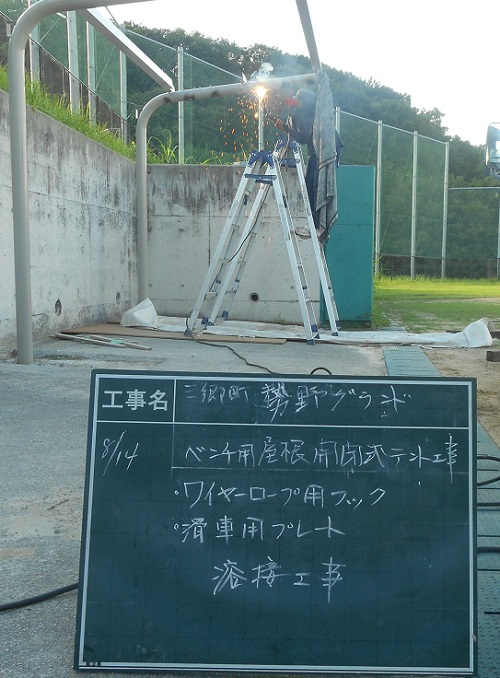 工事名 三郷町 勢野グランド
8/14 ベンチ用屋根開閉式テント工事
・ワイヤーロープ用フック
・滑車用プレート
溶接工事